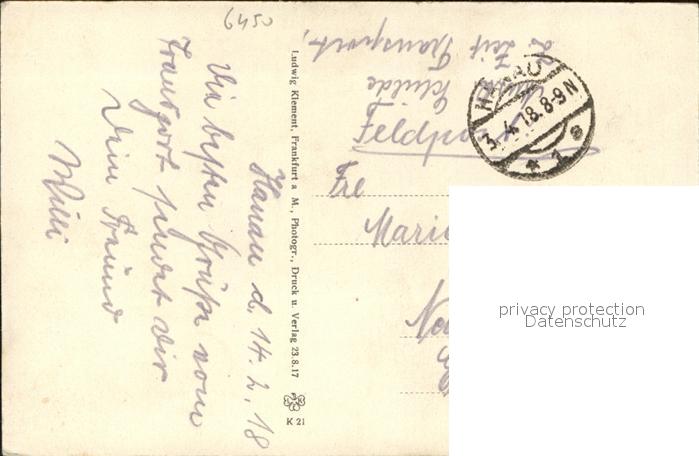 6450
Hanau d. 14. 2. 18
Die besten Grüße vom
Transport sendet dir
Dein Freund
Willi
Ludwig Klement, Frankfurt a M., Photogr., Druck u. Verlag 23.8.17
K 21
z. Zeit Transport,
Feldpost
HANAU
3.4.18.8-9N
* 1 e
Frl
Marie
privacy protection
Datenschutz